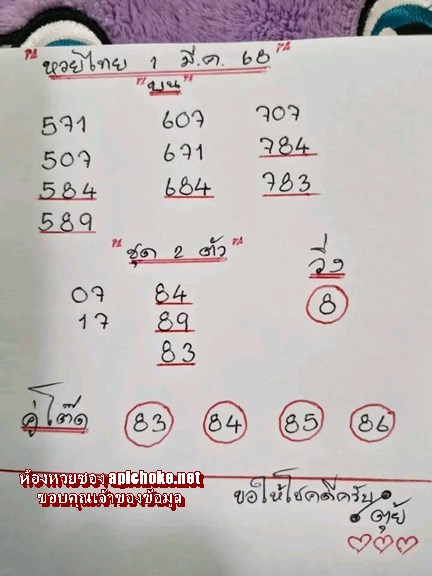 หวยไทย 1 มี.ค. 68
บน
571 607 707
507 671 784
584 684 783
589
ชุด 2 ตัว วิ่ง
07 84 8
17 89
83
คู่โต๊ด 83 84 85 86
ห้องหวยซอง apichoke.net
ขอบคุณเจ้าของข้อมูล
ขอให้โชคดีครับ
ตุ้ย